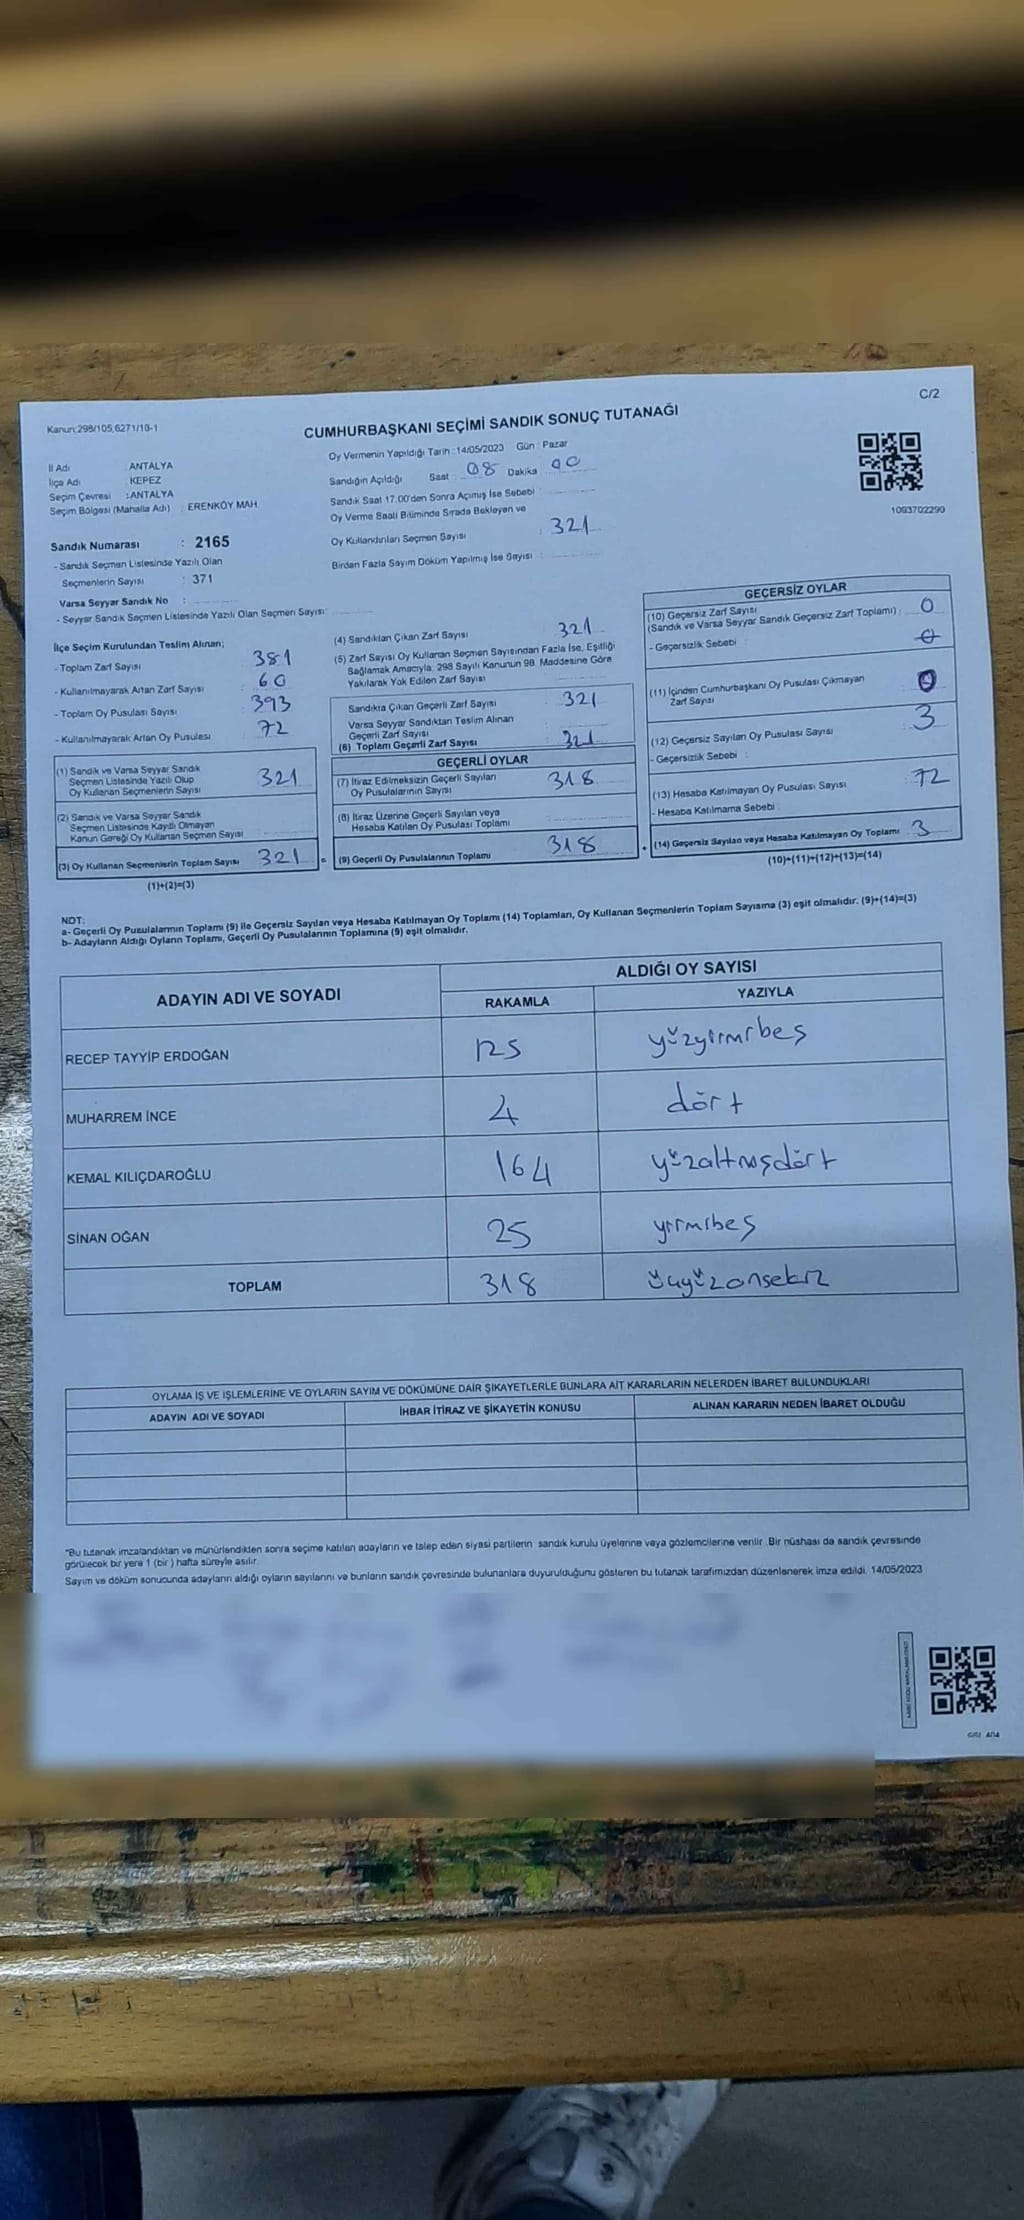 C/2
Kanun:298/105,6271/10-1
CUMHURBAŞKANI SEÇİMİ SANDIK SONUÇ TUTANAĞI
Oy Vermenin Yapıldığı Tarih : 14/05/2023 Gün : Pazar
İl Adı : ANTALYA
İlçe Adı : KEPEZ
Seçim Çevresi : ANTALYA
Seçim Bölgesi (Mahalle Adı) : ERENKÖY MAH
Sandığın Açıldığı Saat : 08 Dakika 00
Sandık Saat 17.00'den Sonra Açımış İse Sebebi :
Oy Verme Saati Bitiminde Sırada Bekleyen ve
Oy Kullandırılan Seçmen Sayısı : 321
Birden Fazla Sayım Döküm Yapılmış İse Sayısı :
1093702290
Sandık Numarası : 2165
- Sandık Seçmen Listesinde Yazılı Olan
Seçmenlerin Sayısı : 371
Varsa Seyyar Sandık No :
- Seyyar Sandık Seçmen Listesinde Yazılı Olan Seçmen Sayısı:
İlçe Seçim Kurulundan Teslim Alınan;
- Toplam Zarf Sayısı : 381
- Kullanılmayarak Artan Zarf Sayısı : 60
- Toplam Oy Pusulası Sayısı : 393
- Kullanılmayarak Artan Oy Pusulası : 72
(1) Sandık ve Varsa Seyyar Sandık
Seçmen Listesinde Yazılı Olup
Oy Kullanan Seçmenlerin Sayısı 321
(2) Sandık ve Varsa Seyyar Sandık
Seçmen Listesinde Kayıtlı Olmayan
Kanun Gereği Oy Kullanan Seçmen Sayısı
(3) Oy Kullanan Seçmenlerin Toplam Sayısı 321 =
(1)+(2)=(3)
(4) Sandıktan Çıkan Zarf Sayısı 321
(5) Zarf Sayısı Oy Kullanan Seçmen Sayısından Fazla İse, Eşitliği
Sağlamak Amacıyla; 298 Sayılı Kanunun 98. Maddesine Göre
Yakılarak Yok Edilen Zarf Sayısı
Sandıkta Çıkan Geçerli Zarf Sayısı : 321
Varsa Seyyar Sandıktan Teslim Alınan
Geçerli Zarf Sayısı :
(6) Toplam Geçerli Zarf Sayısı : 321
GEÇERLİ OYLAR
(7) İtiraz Edilmeksizin Geçerli Sayılan
Oy Pusulalarının Sayısı 318
(8) İtiraz Üzerine Geçerli Sayılan veya
Hesaba Katılan Oy Pusulası Toplamı
(9) Geçerli Oy Pusulalarının Toplamı 318 +
GEÇERSİZ OYLAR
(10) Geçersiz Zarf Sayısı
(Sandık ve Varsa Seyyar Sandık Geçersiz Zarf Toplamı) : 0
- Geçersizlik Sebebi : 0
(11) İçinden Cumhurbaşkanı Oy Pusulası Çıkmayan
Zarf Sayısı 0
(12) Geçersiz Sayılan Oy Pusulası Sayısı 3
- Geçersizlik Sebebi :
(13) Hesaba Katılmayan Oy Pusulası Sayısı : 72
- Hesaba Katılmama Sebebi :
(14) Geçersiz Sayılan veya Hesaba Katılmayan Oy Toplamı 3
(10)+(11)+(12)+(13)=(14)
NOT:
a- Geçerli Oy Pusulalarının Toplamı (9) ile Geçersiz Sayılan veya Hesaba Katılmayan Oy Toplamı (14) Toplamları, Oy Kullanan Seçmenlerin Toplam Sayısına (3) eşit olmalıdır. (9)+(14)=(3)
b- Adayların Aldığı Oyların Toplamı, Geçerli Oy Pusulalarının Toplamına (9) eşit olmalıdır.
ADAYIN ADI VE SOYADI ALDIĞI OY SAYISI
RAKAMLA YAZIYLA
RECEP TAYYİP ERDOĞAN 125 yüzyirmibeş
MUHARREM İNCE 4 dört
KEMAL KILIÇDAROĞLU 164 yüzaltmışdört
SİNAN OĞAN 25 yirmibeş
TOPLAM 318 üçyüzonsekiz
OYLAMA İŞ VE İŞLEMLERİNE VE OYLARIN SAYIM VE DÖKÜMÜNE DAİR ŞİKAYETLERLE BUNLARA AİT KARARLARIN NELERDEN İBARET BULUNDUKLARI
ADAYIN ADI VE SOYADI İHBAR İTİRAZ VE ŞİKAYETİN KONUSU ALINAN KARARIN NEDEN İBARET OLDUĞU
"Bu tutanak imzalandıktan ve mühürlendikten sonra seçime katılan adayların ve talep eden siyasi partilerin sandık kurulu üyelerine veya gözlemcilerine verilir. Bir nüshası da sandık çevresinde
görülecek bir yere 1 (bir ) hafta süreyle asılır.
Sayım ve döküm sonucunda adayların aldığı oyların sayılarını ve bunların sandık çevresinde bulunanlara duyurulduğunu gösteren bu tutanak tarafımızdan düzenlenerek imza edildi. 14/05/2023